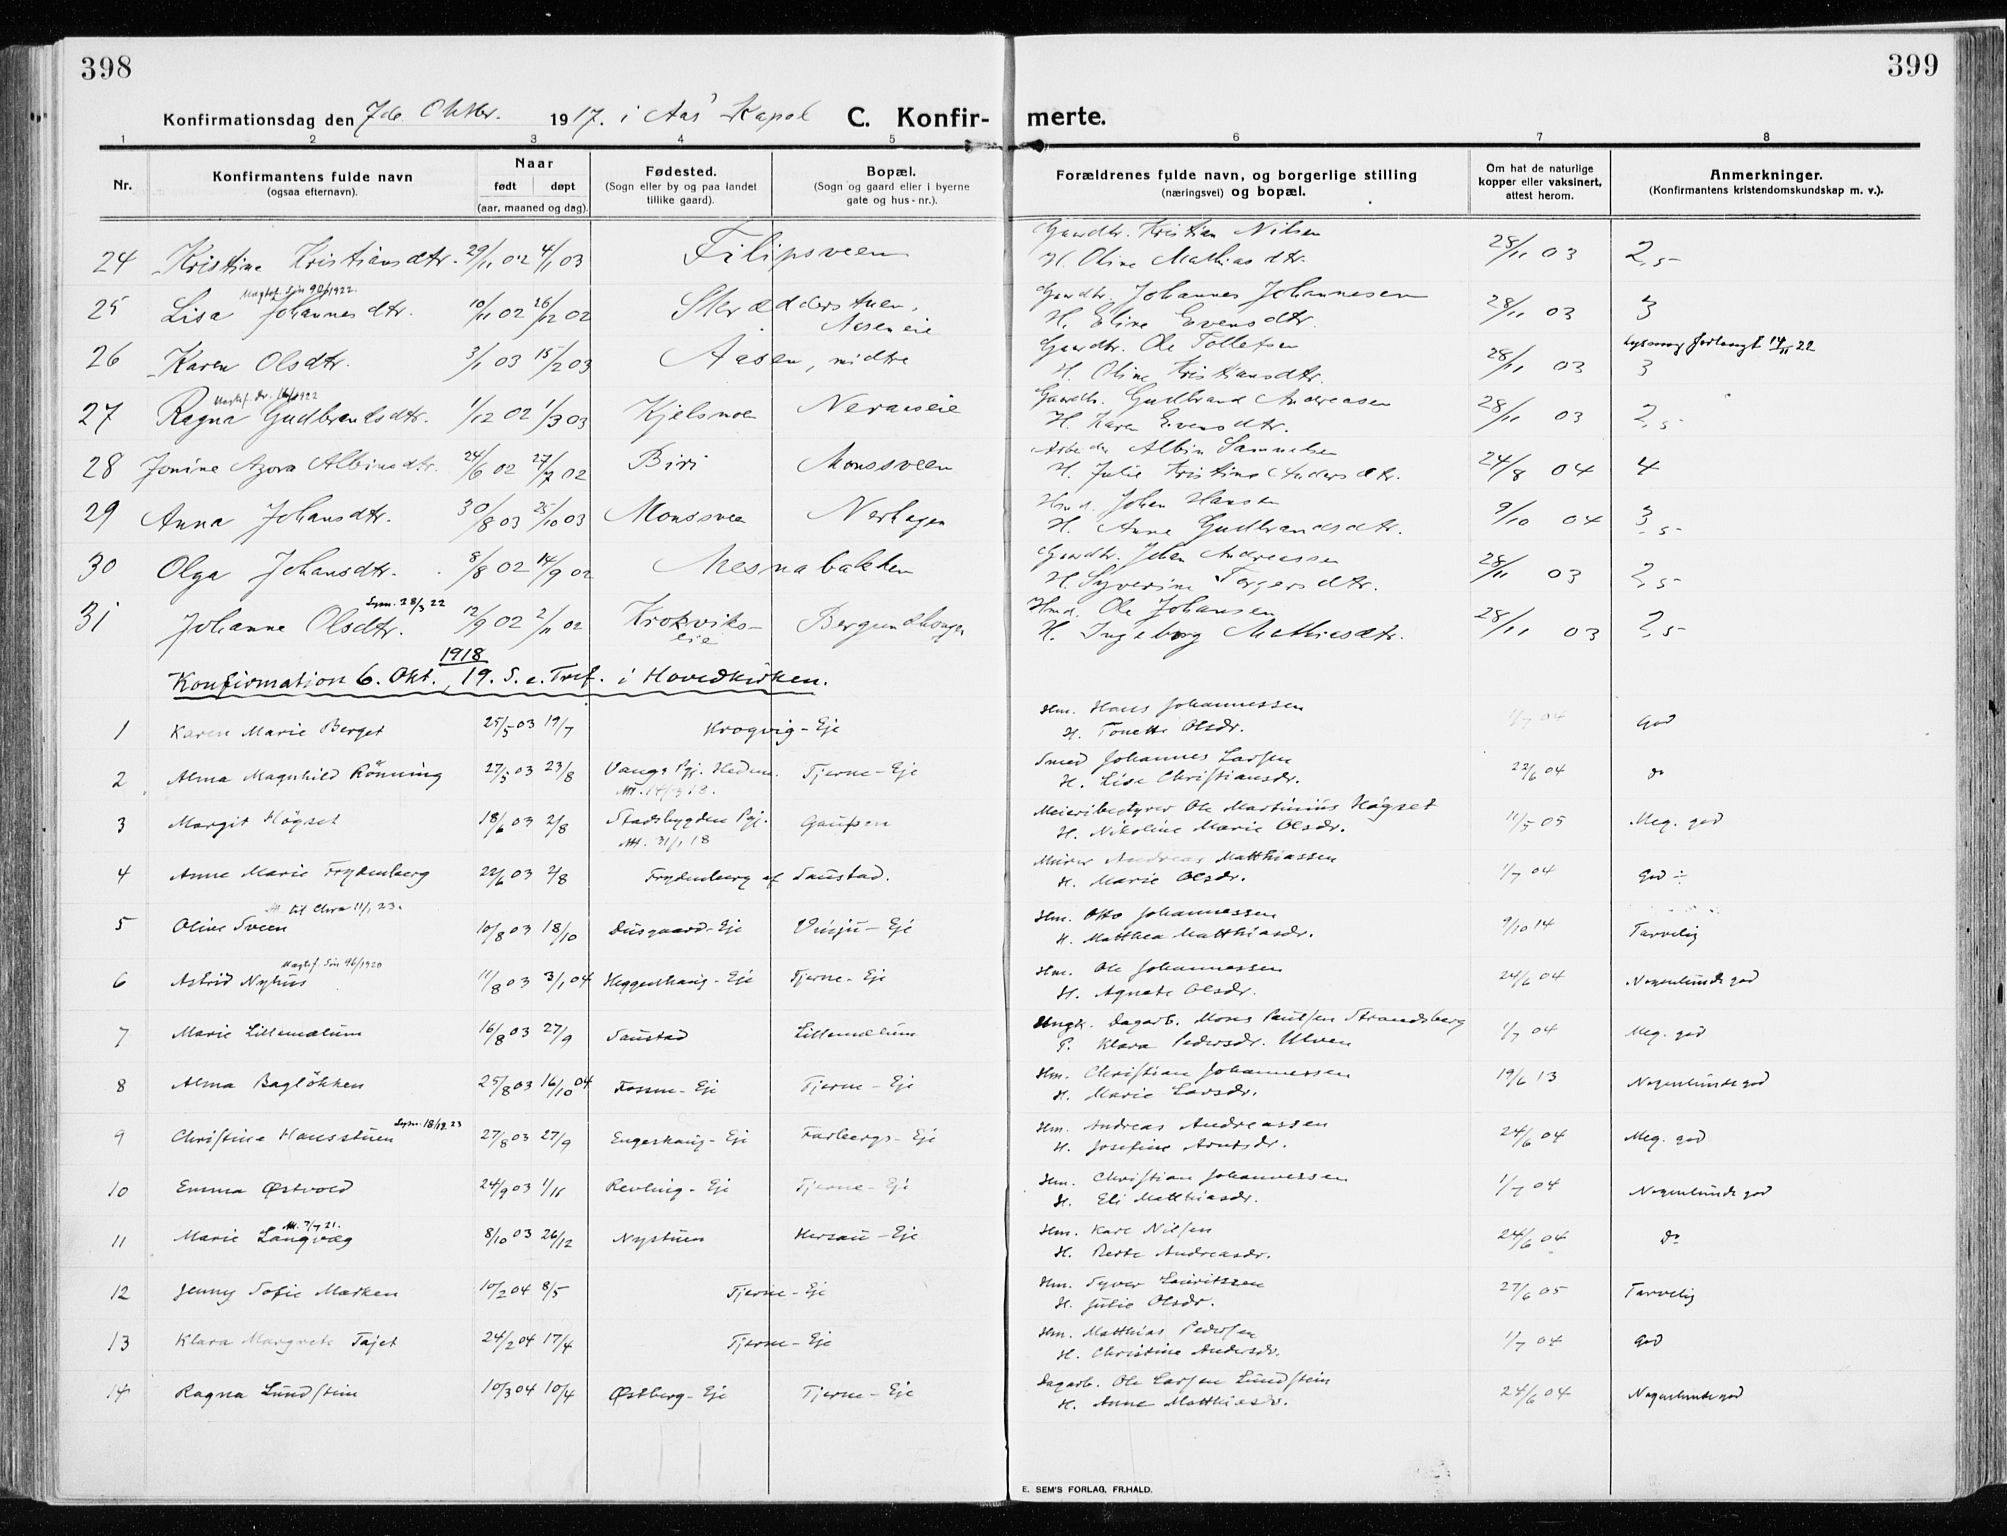 398
399
Konfirmationsdag den 7de Oktbr. 1917. i Aas Kapel C. Konfir- merte.
1 2 3 4 5 6 7 8
Nr.
Konfirmantens fulde navn
(ogsaa efternavn).
Naar
født døpt
(aar, maaned og dag).
Fødested.
(Sogn eller by og paa landet
tillike gaard).
Bopæl.
(Sogn og gaard eller i byerne
gate og hus-nr.).
Forældrenes fulde navn, og borgerlige stilling
(næringsvei) og bopæl.
Om hat de naturlige
kopper eller vaksinert,
attest herom.
Anmerkninger.
(Konfirmantens kristendomskundskap m. v.).
Gaardbr. Kristian Nilsen
24 Kristine Kristiansdtr. 29/11 02 4/1 03 Filipsveen H. Oline Mathiasdtr. 28/11 03 2,5
Gaardbr. Johannes Johannesen
25 Lisa Johannesdtr. 10/11 02 26/12 02 Skrædderstuen, Aaseneie H. Eline Evensdtr. 28/11 03 3
Gaardbr. Ole Tollefsen forlangt 14/11 22
26 Karen Olsdtr. 3/1 03 15/2 03 Aasen, midtre H. Oline Kristiansdtr. 28/11 03 3
Gaardbr. Gudbrand Andreasen
27 Ragna Gudbrandsdtr. 1/12 02 1/3 03 Kjelsmoen H. Karen Evensdtr. 28/11 03 2,5
Arbeider Albin Samuelsen
28 Jonine Azora Albinsdtr. 24/6 02 27/7 02 Biri Monssveen H. Julie Kristine Andersdtr. 24/8 04 4
Hmd. Johan Hansen
29 Anna Johansdtr. 30/8 03 25/10 03 Monssveen Nerhagen H. Anne Gudbrandsdtr. 9/10 04 3,5
Gaardbr. Johan Andreassen
30 Olga Johansdtr. 8/8 02 14/9 02 Mesnabakken H. Syverine Torgersdtr. 28/11 03 2,5
Sym. 28/3 22 Hmd. Ole Johansen
31 Johanne Olsdtr. 12/9 02 2/11 02 Krokviks-eie Bergundhaugen H. Ingeborg Mathiesdtr. 28/11 03 2,5
1918
Konfirmation 6. Okt., 19. S. e. Tref. i Hovedkirken.
Hm. Hans Johannessen
1 Karen Marie Berget 25/5 03 19/7 Krogvig-Eje H. Tonette Olsdr. 1/7 04 God
Smed Johannes Larsen
2 Alma Magnhild Rönning 27/5 03 23/8 Vangs Pgj. Hedm. Tjerne-Eje H. Lise Christiansdr. 22/6 04 do
Att. 14/3 18.
Meieribestyrer Ole Martinius Högset
3 Margit Högset 18/6 03 2/8 Stadsbygden Pgj. Gaupen H. Nikoline Marie Olsdr. 11/5 05 Meg. god
Att. 31/1 18
Murer Andreas Matthiassen
4 Anne Marie Frydenberg 22/6 03 2/8 Frydenberg af Saustad. H. Marie Olsdr. 1/7 04 God ÷
til Chra 11/1 23. Hm. Otto Johannessen
5 Olive Sveen 10/8 03 18/10 Dusgaard-Eje H. Matthea Matthiasdr. 9/10 14 Tarvelig
Hm. Ole Johannessen
6 Astrid Nyhus 11/8 03 3/1 04 Heggenhaug-Eje Tjerne-Eje H. Agnete Olsdr. 24/6 04 Nogenlunde god
Ungk. Dagarb. Mons Paulsen Strandsberg
7 Marie Lillemælum 16/8 03 27/9 Saustad Lillemælum P. Klara Pedersdr. Ulven 1/7 04 Meg. god
Hm. Christian Johannessen
8 Alma Baglökken 25/8 03 16/10 04 Fossum-Eje Tjerne-Eje H. Marie Larsdr. 19/6 13 Nogenlunde god
Sym. 18/12 23 Hm. Andreas Andreassen
9 Christine Hansstuen 27/8 03 27/9 Engeshaug-Eje Farbergs-Eje H. Josefine Arntsdr. 24/6 04 Meg. god
Hm. Christian Johannessen
10 Emma Østvold 24/9 03 1/11 Revling-Eje Tjerne-Eje H. Eli Matthiasdr. 1/7 04 Nogenlunde god
Att. 7/7 21. Hm. Karl Nilsen
11 Marie Langvæg 8/10 03 26/12 Nystuen Hersau-Eje H. Berte Andreasdr. 24/6 04 do
Hm. Syver Lauritssen
12 Jenny Sofie Marken 10/2 04 8/5 Tjerne-Eje H. Julie Olsdr. 27/6 05 Tarvelig
Hm. Matthias Pedersen
13 Klara Margrete Tajet 24/2 04 17/4 Tjerne-Eje H. Christine Andersdr. 1/7 04 God
Dagarb. Ole Larsen Lundstein
14 Ragna Lundstein 10/3 04 10/4 Østberg-Eje Tjerne-Eje H. Anne Matthiasdr. 24/6 04 Nogenlunde god
E. SEM'S FORLAG, FR.HALD.